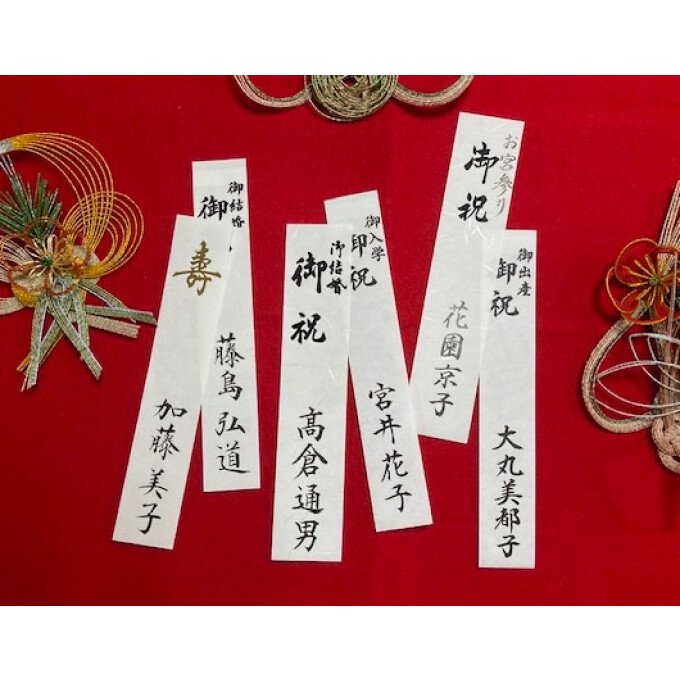 寿
加藤美子
御結婚
御
藤島弘道
御結婚
御祝
高倉通男
御入学
御祝
宮井花子
お宮参り
御祝
花園京子
御出産
御祝
大丸美都子